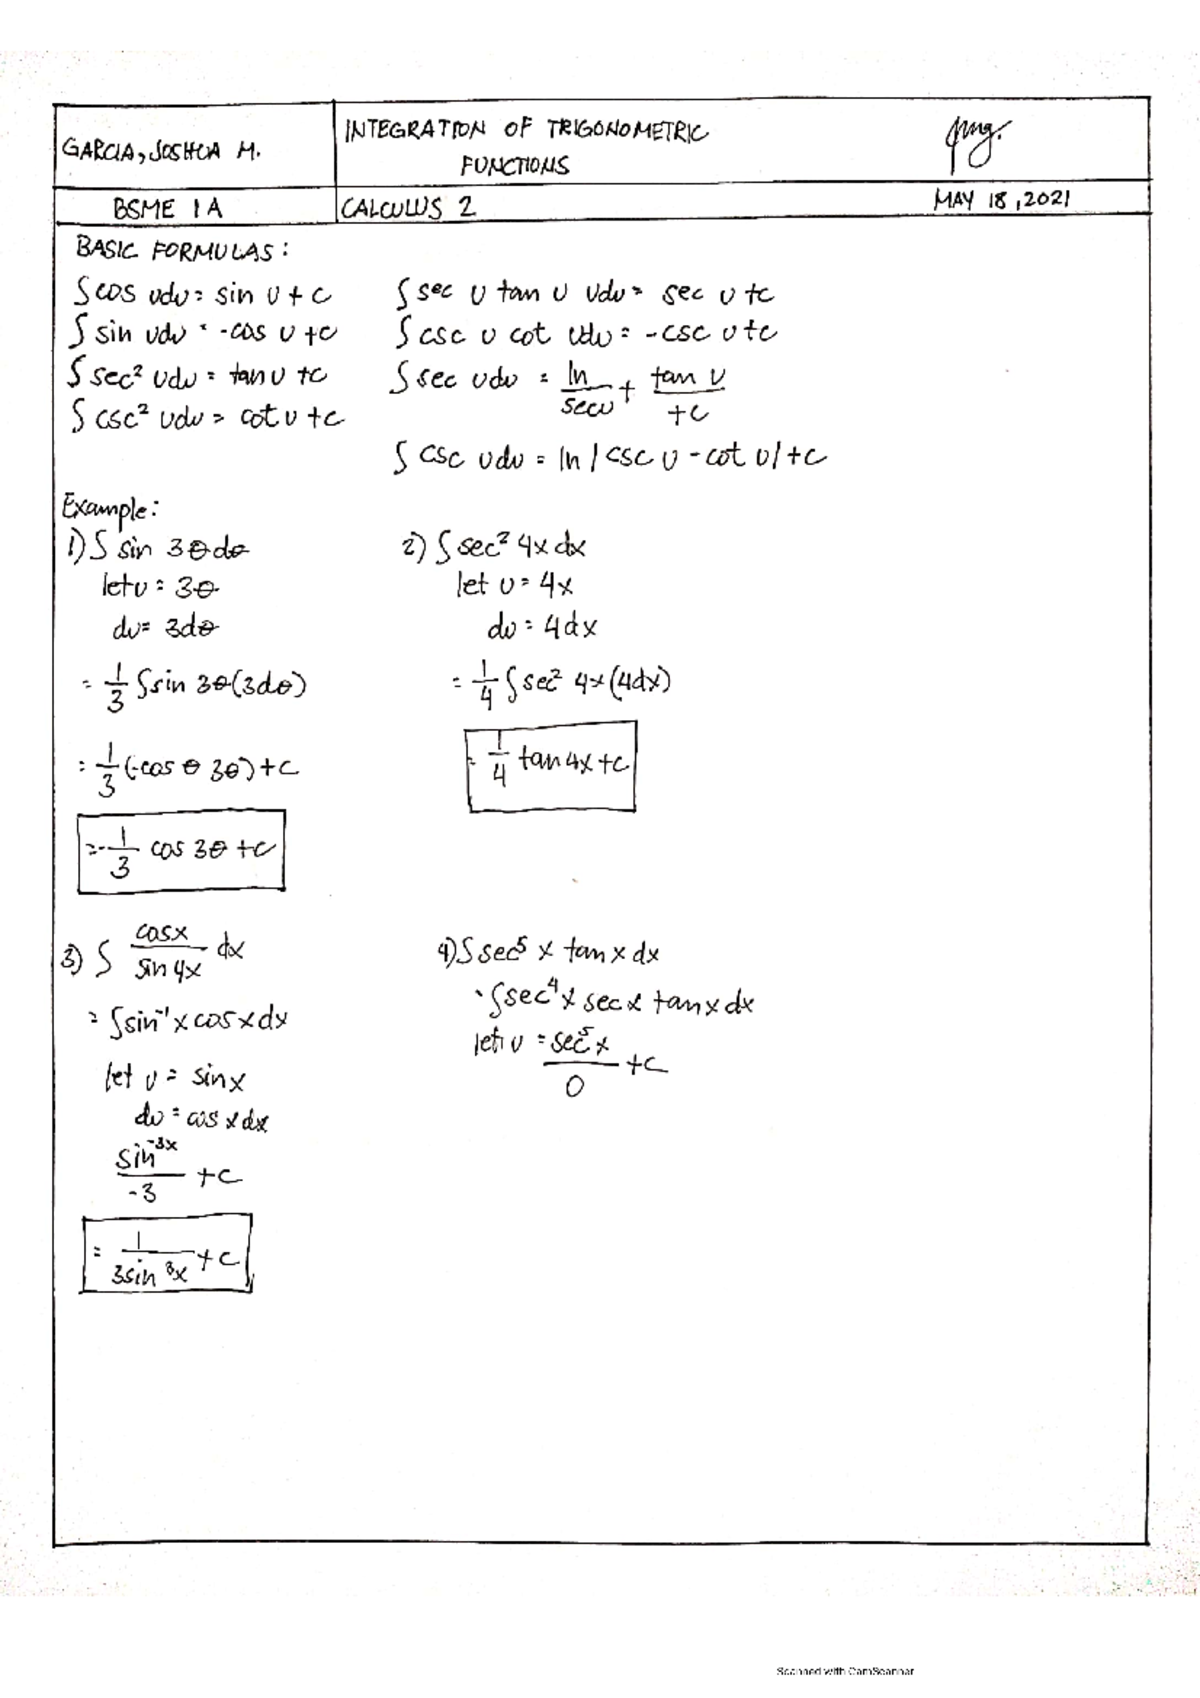 GARCIA, JOSHUA M.
INTEGRATION OF TRIGONOMETRIC
FUNCTIONS
BSME 1A
CALCULUS 2
MAY 18, 2021
BASIC FORMULAS:
∫ cos udu = sin u + c
∫ sin udu = -cos u + c
∫ sec² udu = tan u + c
∫ csc² udu = cot u + c
∫ sec u tan u udu = sec u + c
∫ csc u cot udu = -csc u + c
∫ sec udu = ln/secu + tan u/+c
∫ csc udu = ln / csc u - cot u / + c
Example:
1) ∫ sin 3θdθ
let u = 3θ
du = 3dθ
= 1/3 ∫sin 3θ(3dθ)
= 1/3 (-cos θ 3θ) + c
= -1/3 cos 3θ + c
2) ∫ sec² 4x dx
let u = 4x
du = 4dx
= 1/4 ∫ sec² 4x (4dx)
= 1/4 tan 4x + c
3) ∫ cosx/sin 4x dx
= ∫sin⁻¹ x cos x dx
let u = sinx
du = cos x dx
sin⁻³ˣ/-3 + c
= 1/3sin ³x + c
4) ∫ sec⁵ x tan x dx
= ∫sec⁴ x sec x tan x dx
let u = sec⁵ x/0 + c
Scanned with CamScanner